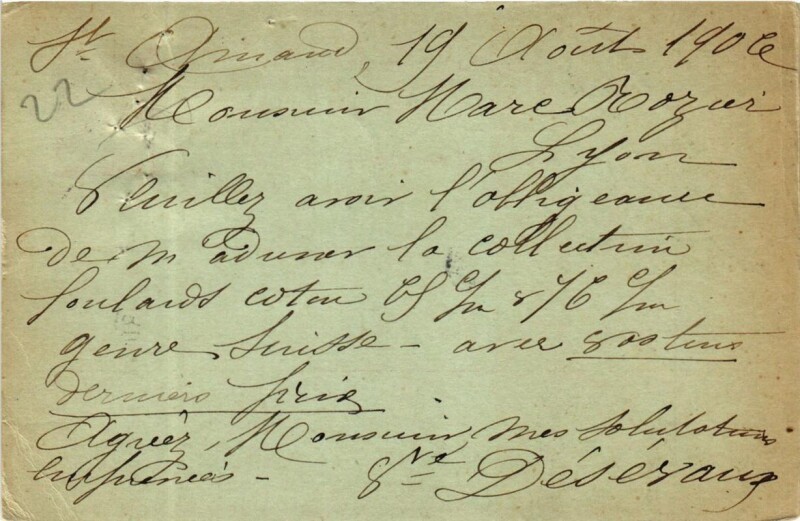 St Amand, 19 Août 1906
22
Monsieur Marc Rozier
Lyon
Veuillez avoir l'obligeance
de m'adresser la collection
foulards coton 65 c/m & 76 c/m
genre Suisse – avec vos tous
derniers prix
Agréez, Monsieur, mes salutations
empressées –
Vve Déséraux